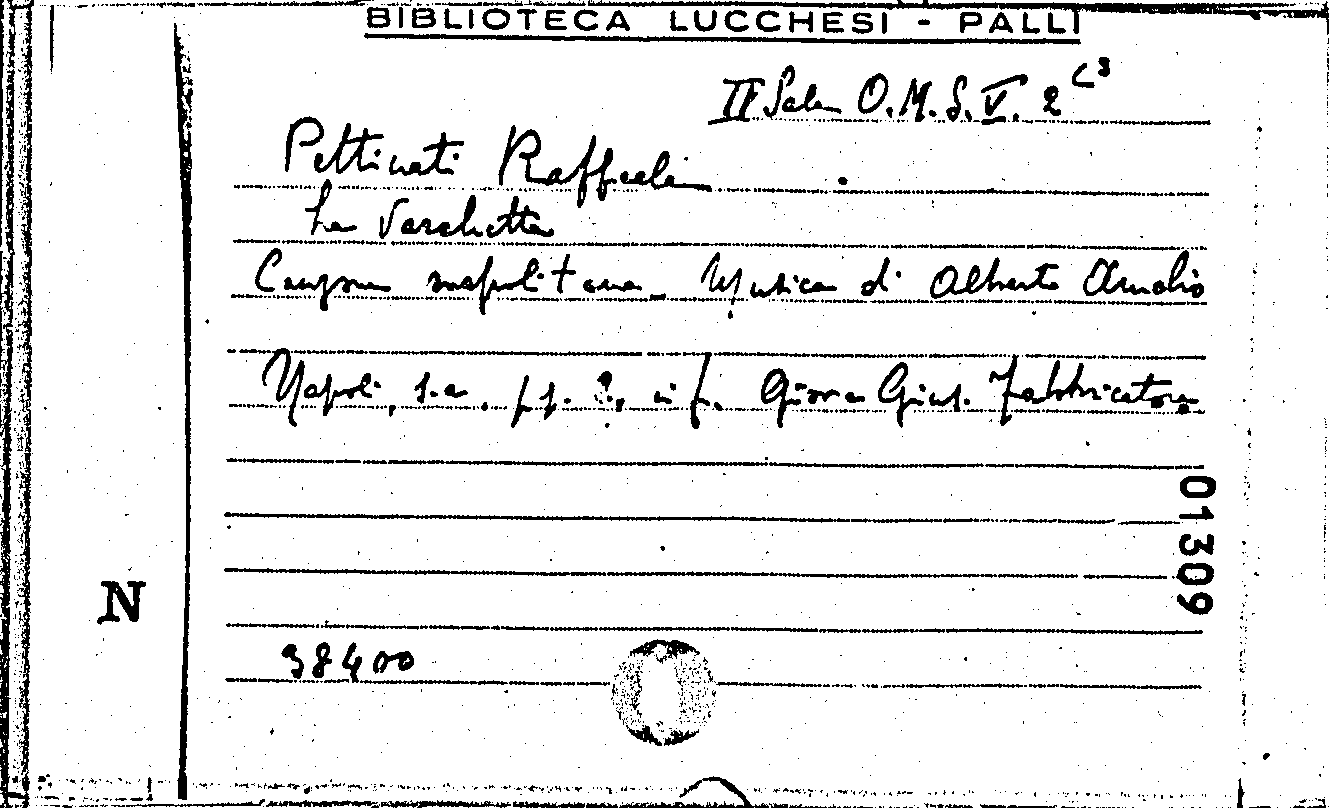 BIBLIOTECA LUCCHESI - PALLI
II Sala O.M.S. V. 2 (3
Pettinati Raffaele
La Varchetta
Canzone napolitana - Musica di Alberto Amalio
Napoli, s.a. pp. in f. Giov e Gius. Fabbricatore
01309
N
38400